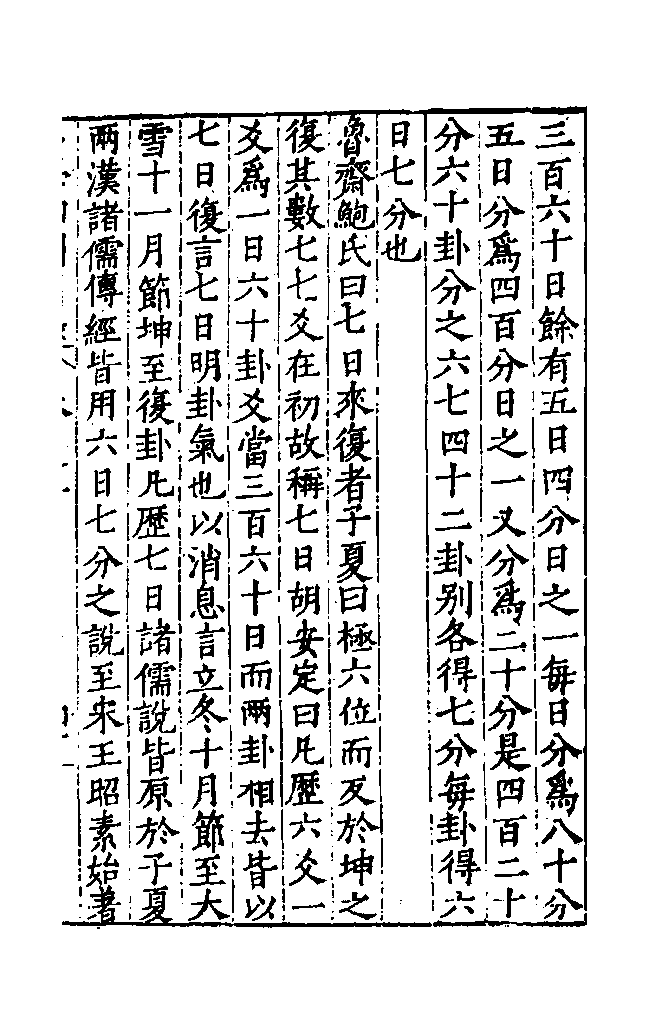 三百六十日餘有五日四分日之一每日分爲八十分
五日分爲四百分日之一又分爲二十分是四百二十
分六十卦分之六七四十二卦别各得七分每卦得六
日七分也
魯齋鮑氏曰七日來復者子夏曰極六位而反於坤之
復其數七七爻在初故稱七日胡安定曰凡歷六爻一
爻爲一日六十卦爻當三百六十日而兩卦相去皆以
七日復言七日明卦氣也以消息言立冬十月節至大
雪十一月節坤至復卦凡歷七日諸儒說皆原於子夏
兩漢諸儒傳經皆用六日七分之說至宋王昭素始著